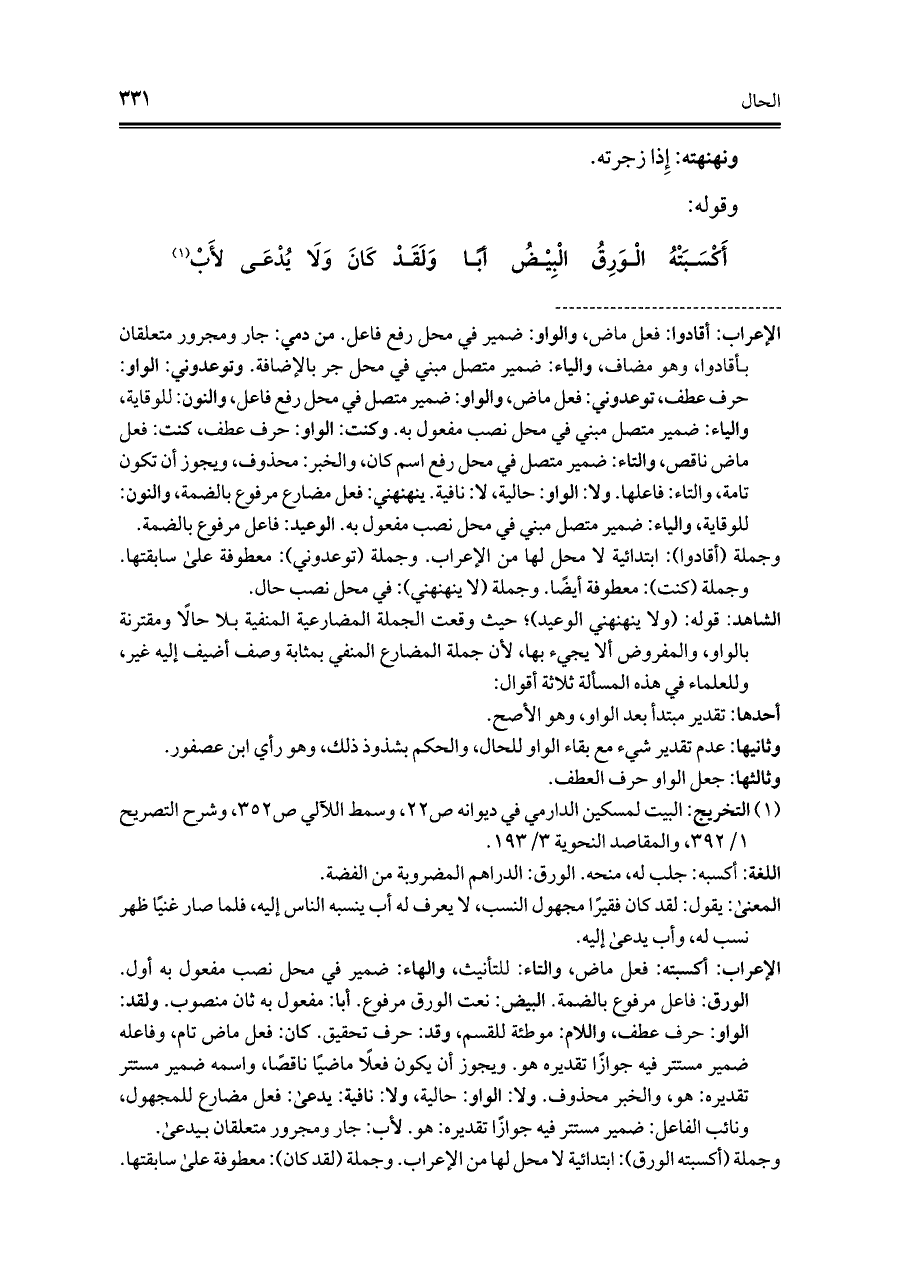 الحال
٣٣١
ونهنهته: إِذا زجرته.
وقوله:
أَكْسَـبَتْهُ الْـوَرِقُ الْبِيْـضُ أَبًـا وَلَقَـدْ كَانَ وَلَا يُدْعَـى لأَبْ(١)
الإعراب: أقادوا: فعل ماض، والواو: ضمير في محل رفع فاعل. من دمي: جار ومجرور متعلقان
بـأقادوا، وهو مضاف، والياء: ضمير متصل مبني في محل جر بالإضافة. وتوعدوني: الواو:
حرف عطف، توعدوني: فعل ماض، والواو: ضمير متصل في محل رفع فاعل، والنون: للوقاية،
والياء: ضمير متصل مبني في محل نصب مفعول به. وكنت: الواو: حرف عطف، كنت: فعل
ماض ناقص، والتاء: ضمير متصل في محل رفع اسم كان، والخبر: محذوف، ويجوز أن تكون
تامة، والتاء: فاعلها. ولا: الواو: حالية، لا: نافية. ينهنهني: فعل مضارع مرفوع بالضمة، والنون:
للوقاية، والياء: ضمير متصل مبني في محل نصب مفعول به. الوعيد: فاعل مرفوع بالضمة.
وجملة (أقادوا): ابتدائية لا محل لها من الإعراب. وجملة (توعدوني): معطوفة علىٰ سابقتها.
وجملة (كنت): معطوفة أيضًا. وجملة (لا ينهنهني): في محل نصب حال.
الشاهد: قوله: (ولا ينهنهني الوعيد)؛ حيث وقعت الجملة المضارعية المنفية بـلا حالًا ومقترنة
بالواو، والمفروض ألا يجيء بها، لأن جملة المضارع المنفي بمثابة وصف أضيف إليه غير،
وللعلماء في هذه المسألة ثلاثة أقوال:
أحدها: تقدير مبتدأ بعد الواو، وهو الأصح.
وثانيها: عدم تقدير شيء مع بقاء الواو للحال، والحكم بشذوذ ذلك، وهو رأي ابن عصفور.
وثالثها: جعل الواو حرف العطف.
(١) التخريج: البيت لمسكين الدارمي في ديوانه ص٢٢، وسمط اللآلي ص٣٥٢، وشرح التصريح
١/ ٣٩٢، والمقاصد النحوية ٣/ ١٩٣.
اللغة: أكسبه: جلب له، منحه. الورق: الدراهم المضروبة من الفضة.
المعنىٰ: يقول: لقد كان فقيرًا مجهول النسب، لا يعرف له أب ينسبه الناس إليه، فلما صار غنيًا ظهر
نسب له، وأب يدعىٰ إليه.
الإعراب: أكسبته: فعل ماض، والتاء: للتأنيث، والهاء: ضمير في محل نصب مفعول به أول.
الورق: فاعل مرفوع بالضمة. البيض: نعت الورق مرفوع. أبا: مفعول به ثان منصوب. ولقد:
الواو: حرف عطف، واللام: موطئة للقسم، وقد: حرف تحقيق. كان: فعل ماض تام، وفاعله
ضمير مستتر فيه جوازًا تقديره هو. ويجوز أن يكون فعلًا ماضيًا ناقصًا، واسمه ضمير مستتر
تقديره: هو، والخبر محذوف. ولا: الواو: حالية، ولا: نافية: يدعىٰ: فعل مضارع للمجهول،
ونائب الفاعل: ضمير مستتر فيه جوازًا تقديره: هو. لأب: جار ومجرور متعلقان بـيدعىٰ.
وجملة (أكسبته الورق): ابتدائية لا محل لها من الإعراب. وجملة (لقد كان): معطوفة علىٰ سابقتها.